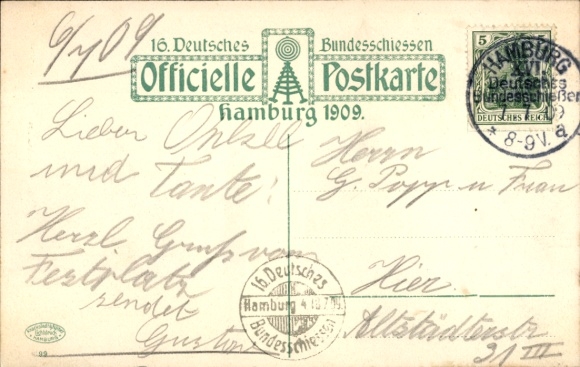 6/7 09
16. Deutsches Bundesschiessen
Officielle Postkarte
Hamburg 1909.
5
DEUTSCHES REICH
HAMBURG
XVI.
Deutsches
Bundesschießen
7 9
* 8-9V. a
Lieber Onkell
und Tante!
Herzl. Gruß vom
Festplatz
sendet
Gustav
Herrn
G. Popp u Frau
Hier
Altstädterstr
31 III
16. Deutsches
Hamburg 4.-18.7.09.
Bundesschiessen
HAMBURG
99